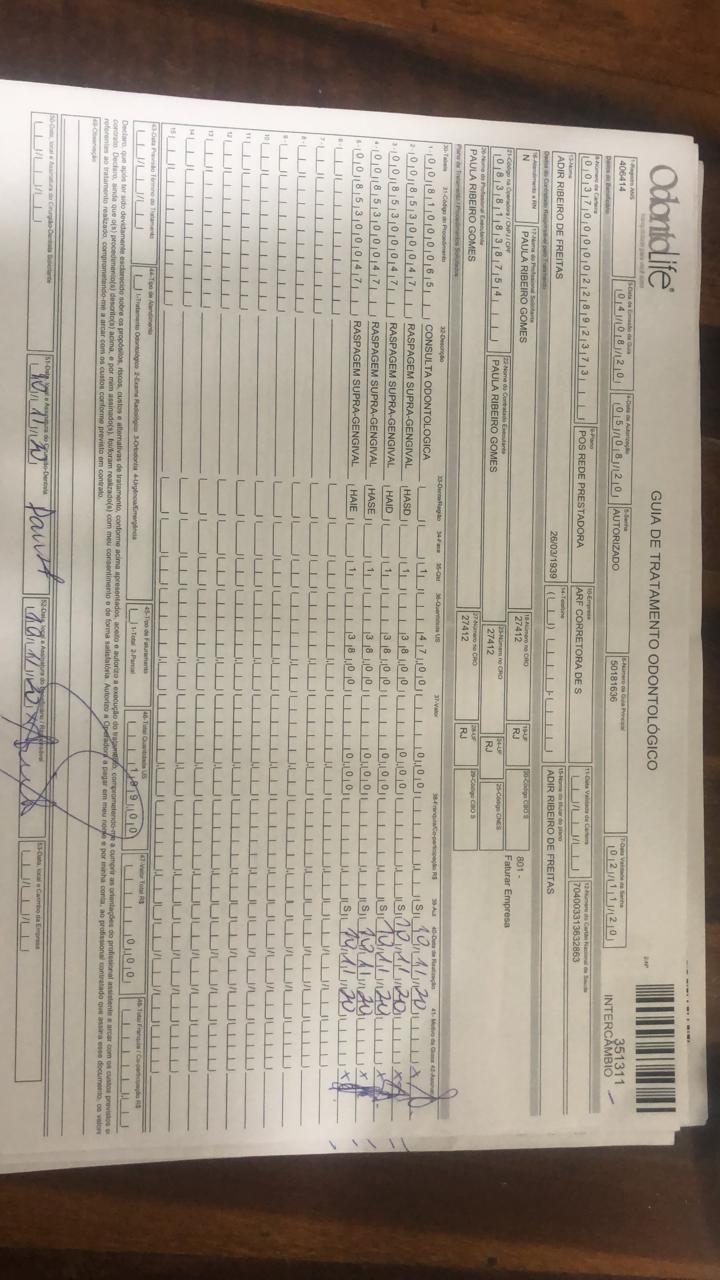 OdontoLife®
GUIA DE TRATAMENTO ODONTOLÓGICO
2-Nº
351311
INTERCÂMBIO
1-Registro ANS
406414
3-Data de Emissão da Guia
04/08/20
4-Data de Autorização
05/08/20
5-Senha
AUTORIZADO
6-Número da Guia Principal
50181636
7-Data Validade da Senha
02/11/20
Dados do Beneficiário
8-Número da Carteira
00370000022892373
9-Plano
POS REDE PRESTADORA
10-Empresa
ARF CORRETORA DE S
11-Data Validade da Carteira
12-Número do Cartão Nacional de Saúde
704003313632863
13-Nome
ADIR RIBEIRO DE FREITAS
26/03/1939
14-Telefone
15-Nome do titular do plano
ADIR RIBEIRO DE FREITAS
Dados do Contratado Responsável pelo Tratamento
16-Atendimento a RN
N
17-Nome do Profissional Solicitante
PAULA RIBEIRO GOMES
18-Número no CRO
27412
19-UF
RJ
20-Código CBO S
801 -
Faturar Empresa
21-Código na Operadora / CNPJ / CPF
08381838754
22-Nome do Contratado Executante
PAULA RIBEIRO GOMES
23-Número no CRO
27412
24-UF
RJ
25-Código CNES
26-Nome do Profissional Executante
PAULA RIBEIRO GOMES
27-Número no CRO
27412
28-UF
RJ
29-Código CBO S
Plano de Tratamento / Procedimentos Solicitados
30-Tabela 31-Código do Procedimento 32-Descrição 33-Dente/Região 34-Face 35-Qtd 36-Quantidade US 37-Valor 38-Franquia/Co-participação R$ 39-Aut 40-Data de Realização 41- Motivo da Glosa 42-Assinatura
1- 0081000065 CONSULTA ODONTOLOGICA 1 47,00 0,00 S 10/11/20 x
2- 0085300047 RASPAGEM SUPRA-GENGIVAL HASD 1 38,00 0,00 S 10/11/20 x
3- 0085300047 RASPAGEM SUPRA-GENGIVAL HAID 1 38,00 0,00 S 10/11/20 x
4- 0085300047 RASPAGEM SUPRA-GENGIVAL HASE 1 38,00 0,00 S 10/11/20 x
5- 0085300047 RASPAGEM SUPRA-GENGIVAL HAIE 1 38,00 0,00 S 10/11/20 x
6-
7-
8-
9-
10
11
12
13
14
15
43-Data Previsão Término do Tratamento
44-Tipo de Atendimento
1-Tratamento Odontológico 2-Exame Radiológico 3-Ortodontia 4-Urgência/Emergência
45-Tipo de Faturamento
1-Total 2-Parcial
46-Total Quantidade US
199,00
47-Valor Total R$
0,00
48-Total Franquia / Co-participação R$
Declaro, que após ter sido devidamente esclarecido sobre os propósitos, riscos, custos e alternativas de tratamento, conforme acima apresentados, aceito e autorizo a execução do tratamento, comprometendo-me a cumprir as orientações do profissional assistente e arcar com os custos previstos em
contrato. Declaro, ainda que o(s) procedimento(s) descrito(s) acima, e por mim assinado(s), foi/foram realizado(s) com meu consentimento e de forma satisfatória. Autorizo a Operadora a pagar em meu nome e por minha conta, ao profissional contratado que assina esse documento, os valores
referentes ao tratamento realizado, comprometendo-me a arcar com os custos conforme previsto em contrato.
49-Observação
50-Data, local e Assinatura do Cirurgião-Dentista Solicitante
51-Data, local e Assinatura do Cirurgião-Dentista
10/11/20
52-Data, local e Assinatura do Beneficiário / Responsável
10/11/20
53-Data, local e Carimbo da Empresa